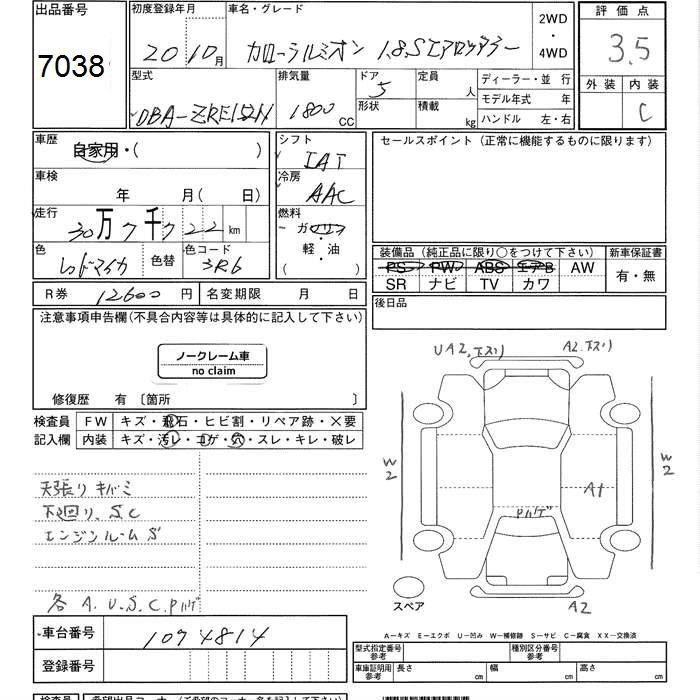 出品番号 初度登録年月 車名・グレード 2WD・4WD 評価点
7038 20 10月 カローラルミオン 1.8Sエアロツアラー 3.5
型式 排気量 ドア 定員 人 ディーラー・並行 外装 内装
DBA-ZRE152N 1800CC 5 形状 積載 kg モデル年式 年 C
ハンドル 左・右
車歴 シフト セールスポイント（正常に機能するものに限ります）
自家用・( ) IAT
車検 冷房
年 月( 日) AAC
走行 燃料
30万7千722km ガソリン・軽・油
( )
色 色替 色コード 装備品（純正品に限り○をつけて下さい） 新車保証書
レッドマイカ 3R6 PS PW ABS エアB AW 有・無
SR ナビ TV カワ
R券 12600円 名変期限 月 日 後日品
注意事項申告欄(不具合内容等は具体的に記入して下さい)
ノークレーム車
no claim
UA2.下スリ A2.下スリ
修復歴 有 〔箇所 〕
検査員 FW キズ・飛石・ヒビ割・リペア跡・×要
記入欄 内装 キズ・汚レ・コゲ・穴・スレ・キレ・破レ
W2 W2
天張りキバミ A1
下廻り、S.C Pハゲ
エンジンルームS
各 A.U.S.C.Pハゲ
スペア A2
車台番号 1074814
A－キズ E－エクボ U－凹み W－補修跡 S－サビ C－腐食 XX－交換済
登録番号 型式指定番号 参考 種別区分番号 参考
車庫証明用 参考 長さ cm 幅 cm 高さ cm